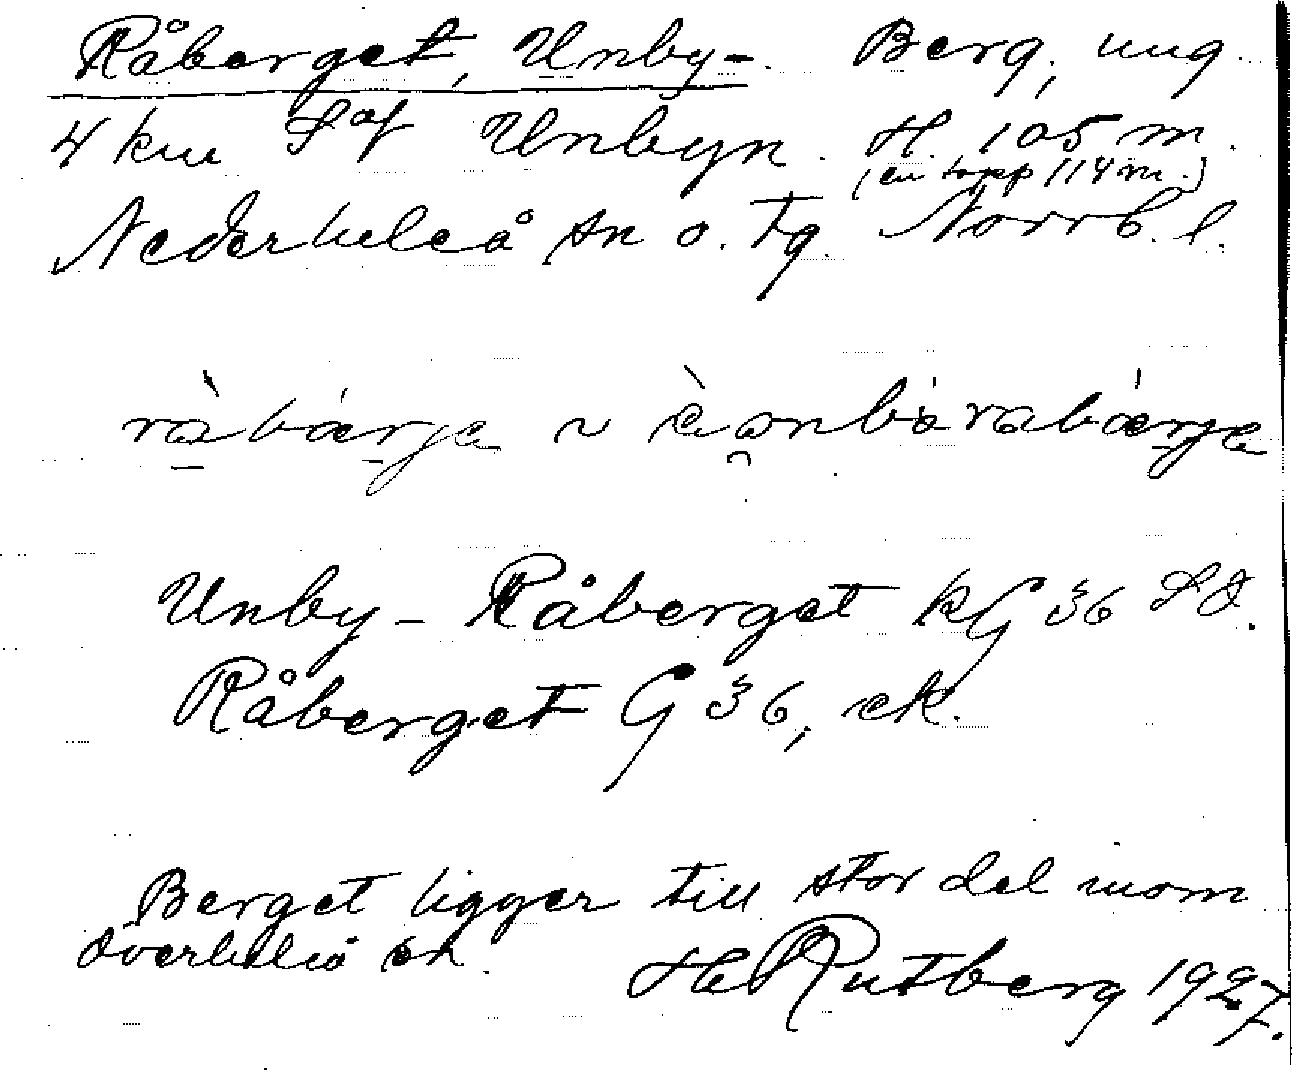 Råberget, Unby-. Berg, ung.
4 km S of Unbyn. H. 105 m.
(en topp 114 m.)
Nederluleå sn o. tg. Norrb. l.
råbärje ~
Unby-Råberget kG 36 SO.
Råberget G 36, ek.
Berget ligger till stor del inom
Överluleå sn. H Rutberg 1927.